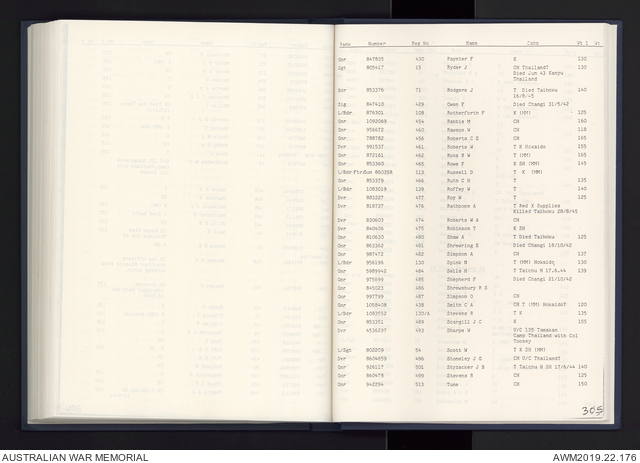 Rank Number Reg No Name Camp Wt 1 Wt
Gnr 847835 430 Paynter F K 130
Sgt 805417 13 Ryder J CH Thailand? 130
Died Jun 43 Kanyu
Thailand
Bdr 853376 71 Rodgers J T Died Taihoku 140
16/8/45
Sig 847410 429 Owen F Died Changi 31/5/42
L/Bdr 876301 108 Rotherforth F K (MM) 125
Gnr 1092069 454 Rabbis M CH 160
Gnr 956672 460 Rawson W CH 118
Gnr 788782 456 Roberts C E CH 165
Dvr 991537 461 Roberts W T K Hokaido 155
Gnr 872161 462 Ross R W T (MM) 165
Gnr 853360 465 Rowe F K SH (MM) 145
L/Bdr Ftr/Gun 860398 113 Russell D T K (MM)
Gnr 853379 466 Ruth C H T 135
L/Bdr 1083019 139 Roffey W T 140
Dvr 883227 477 Roy W T 125
Dvr 818737 476 Rathbone A T Red X Supplies
Killed Taihoku 28/8/45
Dvr 820603 474 Roberts W A CH
Dvr 840406 475 Robinson T K SH
Gnr 810630 480 Shaw A T Died Taihoku 125
Gnr 863362 481 Shrewring E Died Changi 18/10/42
Gnr 987472 482 Simpson A CH 137
L/Bdr 956196 130 Spink N T (MM) Hokaido 130
Gnr 5989942 484 Sells H T Taichu H 17.6.44 139
Gnr 975699 485 Shepherd F Died Changi 21/10/42
Gnr 845023 486 Shrewsbury R S
Gnr 997799 487 Simpson O CH
Gnr 1058408 438 Smith C A CH T (MM) Hokaido? 120
L/Bdr 1083552 130/A Stevens R T K 135
Gnr 853351 489 Scargill J C K 155
Dvr 4536297 493 Sharpe W U/C 135 Tamakan
Camp Thailand with Col
Toosey
L/Sgt 802209 54 Scott W T K SH (MM)
Dvr 8604659 496 Stoneley J G CH U/C Thailand?
Gnr 926117 501 Styzacker J B T Taichu H SH 17/6/44 140
Gnr 860475 499 Stevens R CH 125
Gnr 942294 513 Tune CH 150
305
AUSTRALIAN WAR MEMORIAL AWM2019.22.176